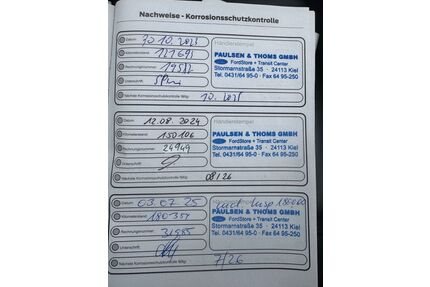 Nachweise - Korrosionsschutzkontrolle
Datum 30.10.2023 Händlerstempel
Kilometerstand
Rechnungsnummer
Unterschrift
PAULSEN & THOMS GMBH
FordStore + Transit Center
Stormarnstraße 35 · 24113 Kiel
Tel. 0431/64 95-0 · Fax 64 95-250
Nächste Korrosionsschutzkontrolle fällig: 10.2025
Datum 12.08.2024 Händlerstempel
Kilometerstand 150106
Rechnungsnummer 24949
Unterschrift
PAULSEN & THOMS GMBH
FordStore + Transit Center
Stormarnstraße 35 · 24113 Kiel
Tel. 0431/64 95-0 · Fax 64 95-250
Nächste Korrosionsschutzkontrolle fällig: 08/26
Datum 03.07.25 Insp 180000
Kilometerstand 180351
Rechnungsnummer 31985
Unterschrift
PAULSEN & THOMS GMBH
FordStore + Transit Center
Stormarnstraße 35 · 24113 Kiel
Tel. 0431/64 95-0 · Fax 64 95-250
Nächste Korrosionsschutzkontrolle fällig: 7/26